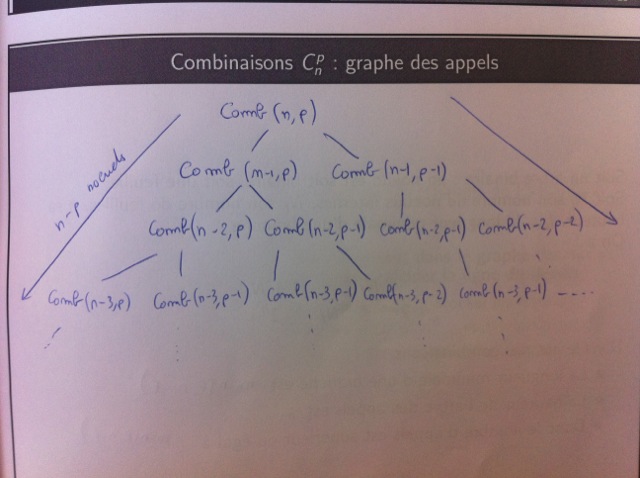 Combinaisons Cₙᵖ : graphe des appels
Comb (n,p)
Comb (n-1,p) Comb (n-1,p-1)
n-p noeuds
Comb(n-2,p) Comb(n-2,p-1) Comb(n-2,p-1) Comb(n-2,p-2)
Comb(n-3,p) Comb(n-3,p-1) Comb(n-3,p-1) Comb(n-3,p-2) Comb(n-3,p-1) ----